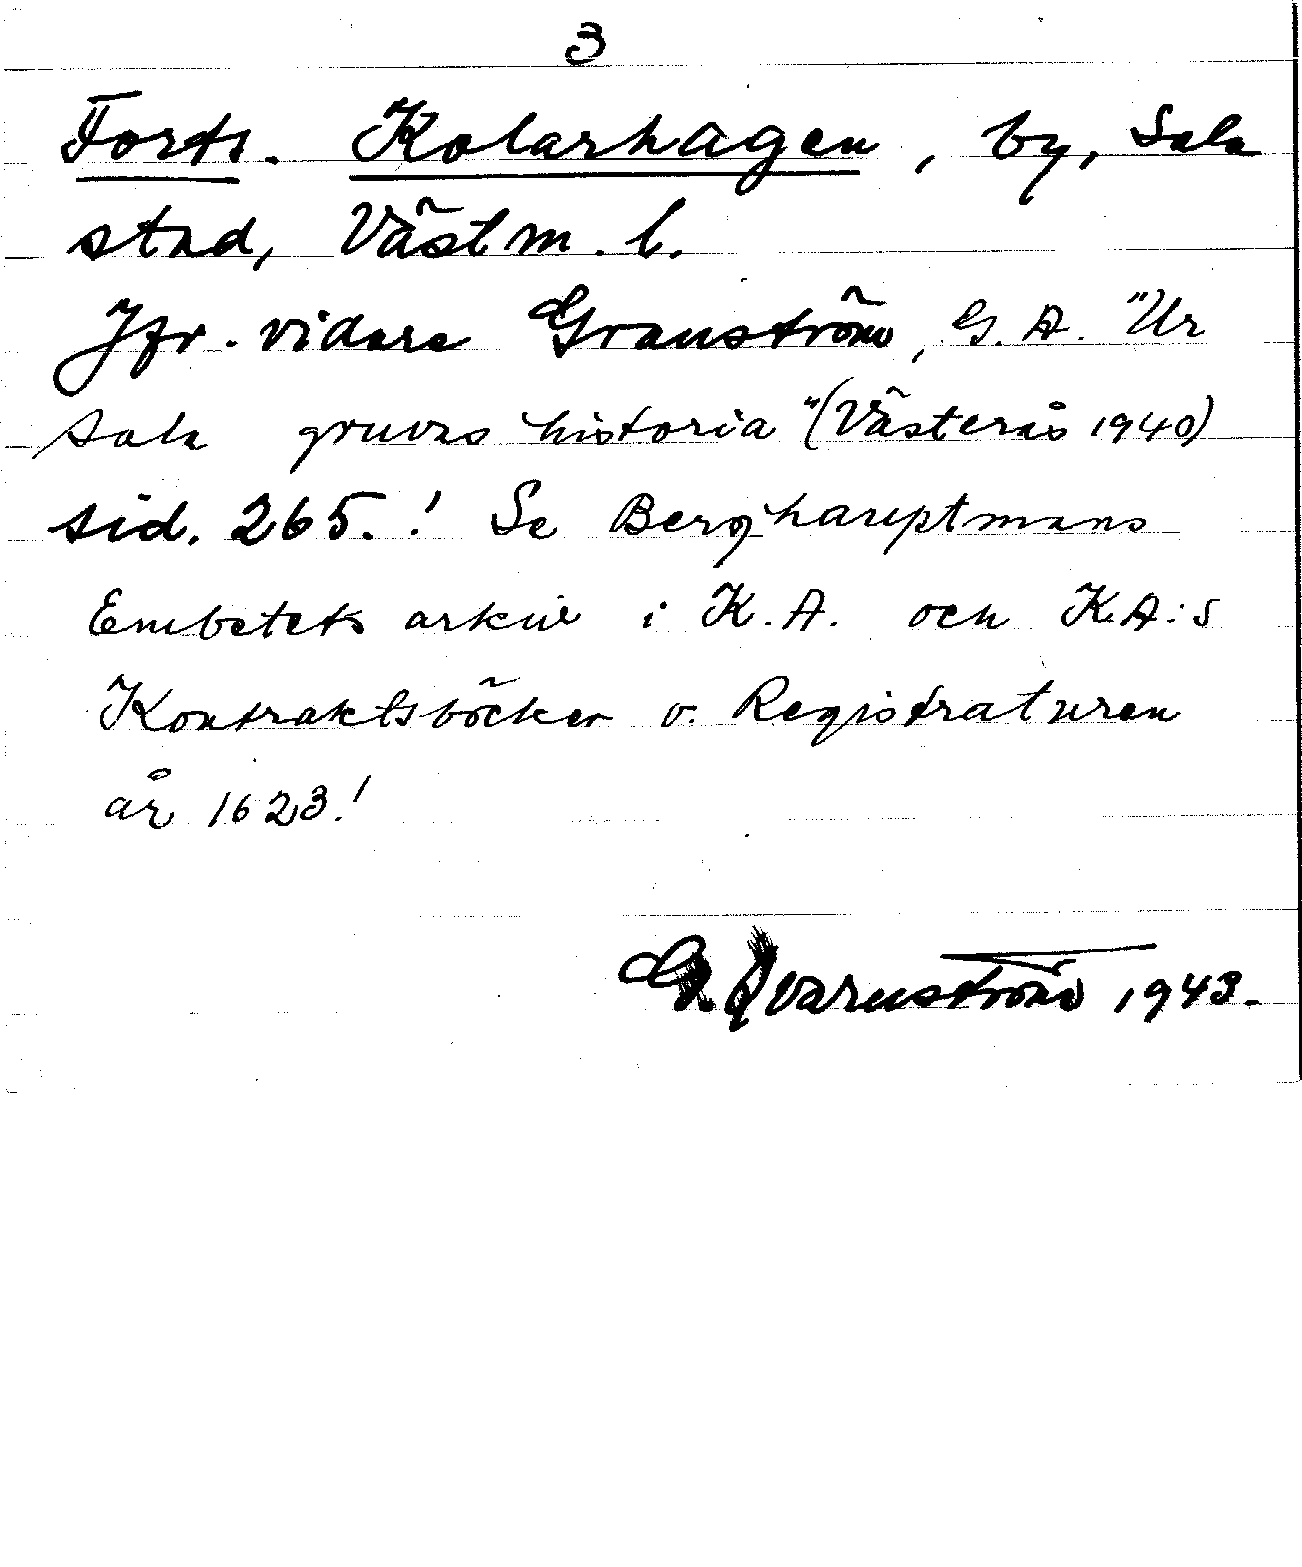 3
Forts. Kolarhagen, by, Sala
stad, Västm. l.
Jfr. vidare Granström, G. A. "Ur
Sala gruvas historia" (Västerås 1940)
sid. 265.! Se Berghauptmans
Embetets arkiv i K.A. och K.A:s
Kontraktsböcker o. Registraturen
år 1623.!
G. Qvarnström 1943.